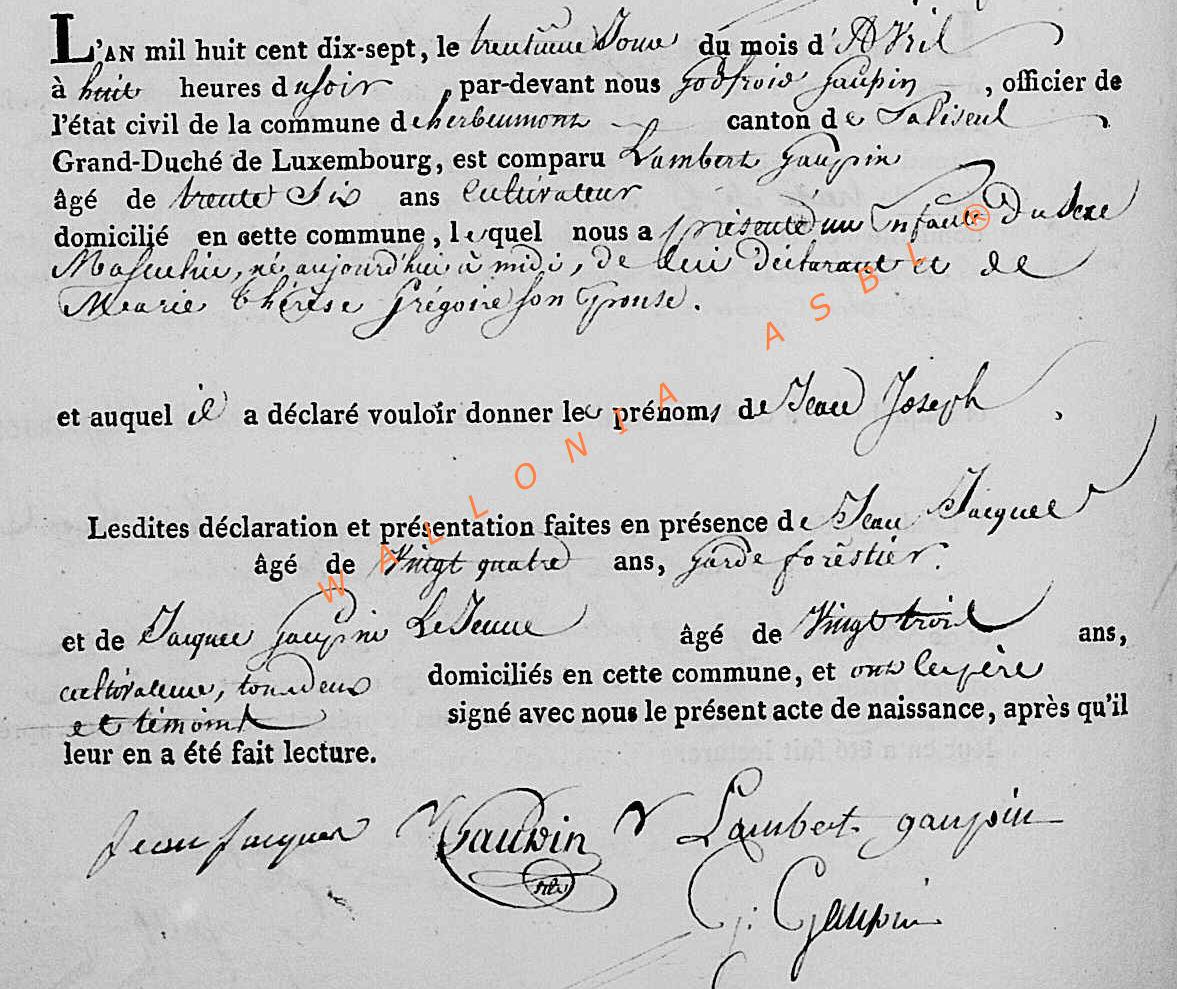 L'AN mil huit cent dix-sept, le trentième Jour du mois d'Avril
à huit heures du soir, par-devant nous Godfroid Gaupin, officier de
l'état civil de la commune de herbeumont canton de Paliseul,
Grand-Duché de Luxembourg, est comparu Lambert Gaupin
âgé de trente Six ans Cultivateur
domicilié en cette commune, lequel nous a présenté un Enfant Du Sexe
Masculin, né aujourd'hui à midi, de Lui Déclarant et de
Marie thérèse Grégoire son Epouse.
et auquel il a déclaré vouloir donner les prénoms de Jean Joseph,
Lesdites déclaration et présentation faites en présence de Jean Jacques
âgé de Vingt quatre ans, garde forestier.
et de Jacques Gaupin Le Jeune âgé de Vingt trois ans,
cultivateur, tous deux domiciliés en cette commune, et ont le père
et témoins signé avec nous le présent acte de naissance, après qu'il
leur en a été fait lecture.
Jean Jacques Gaupin Lambert gaupin
G. Gaupin
WALLONIA ASBL ®